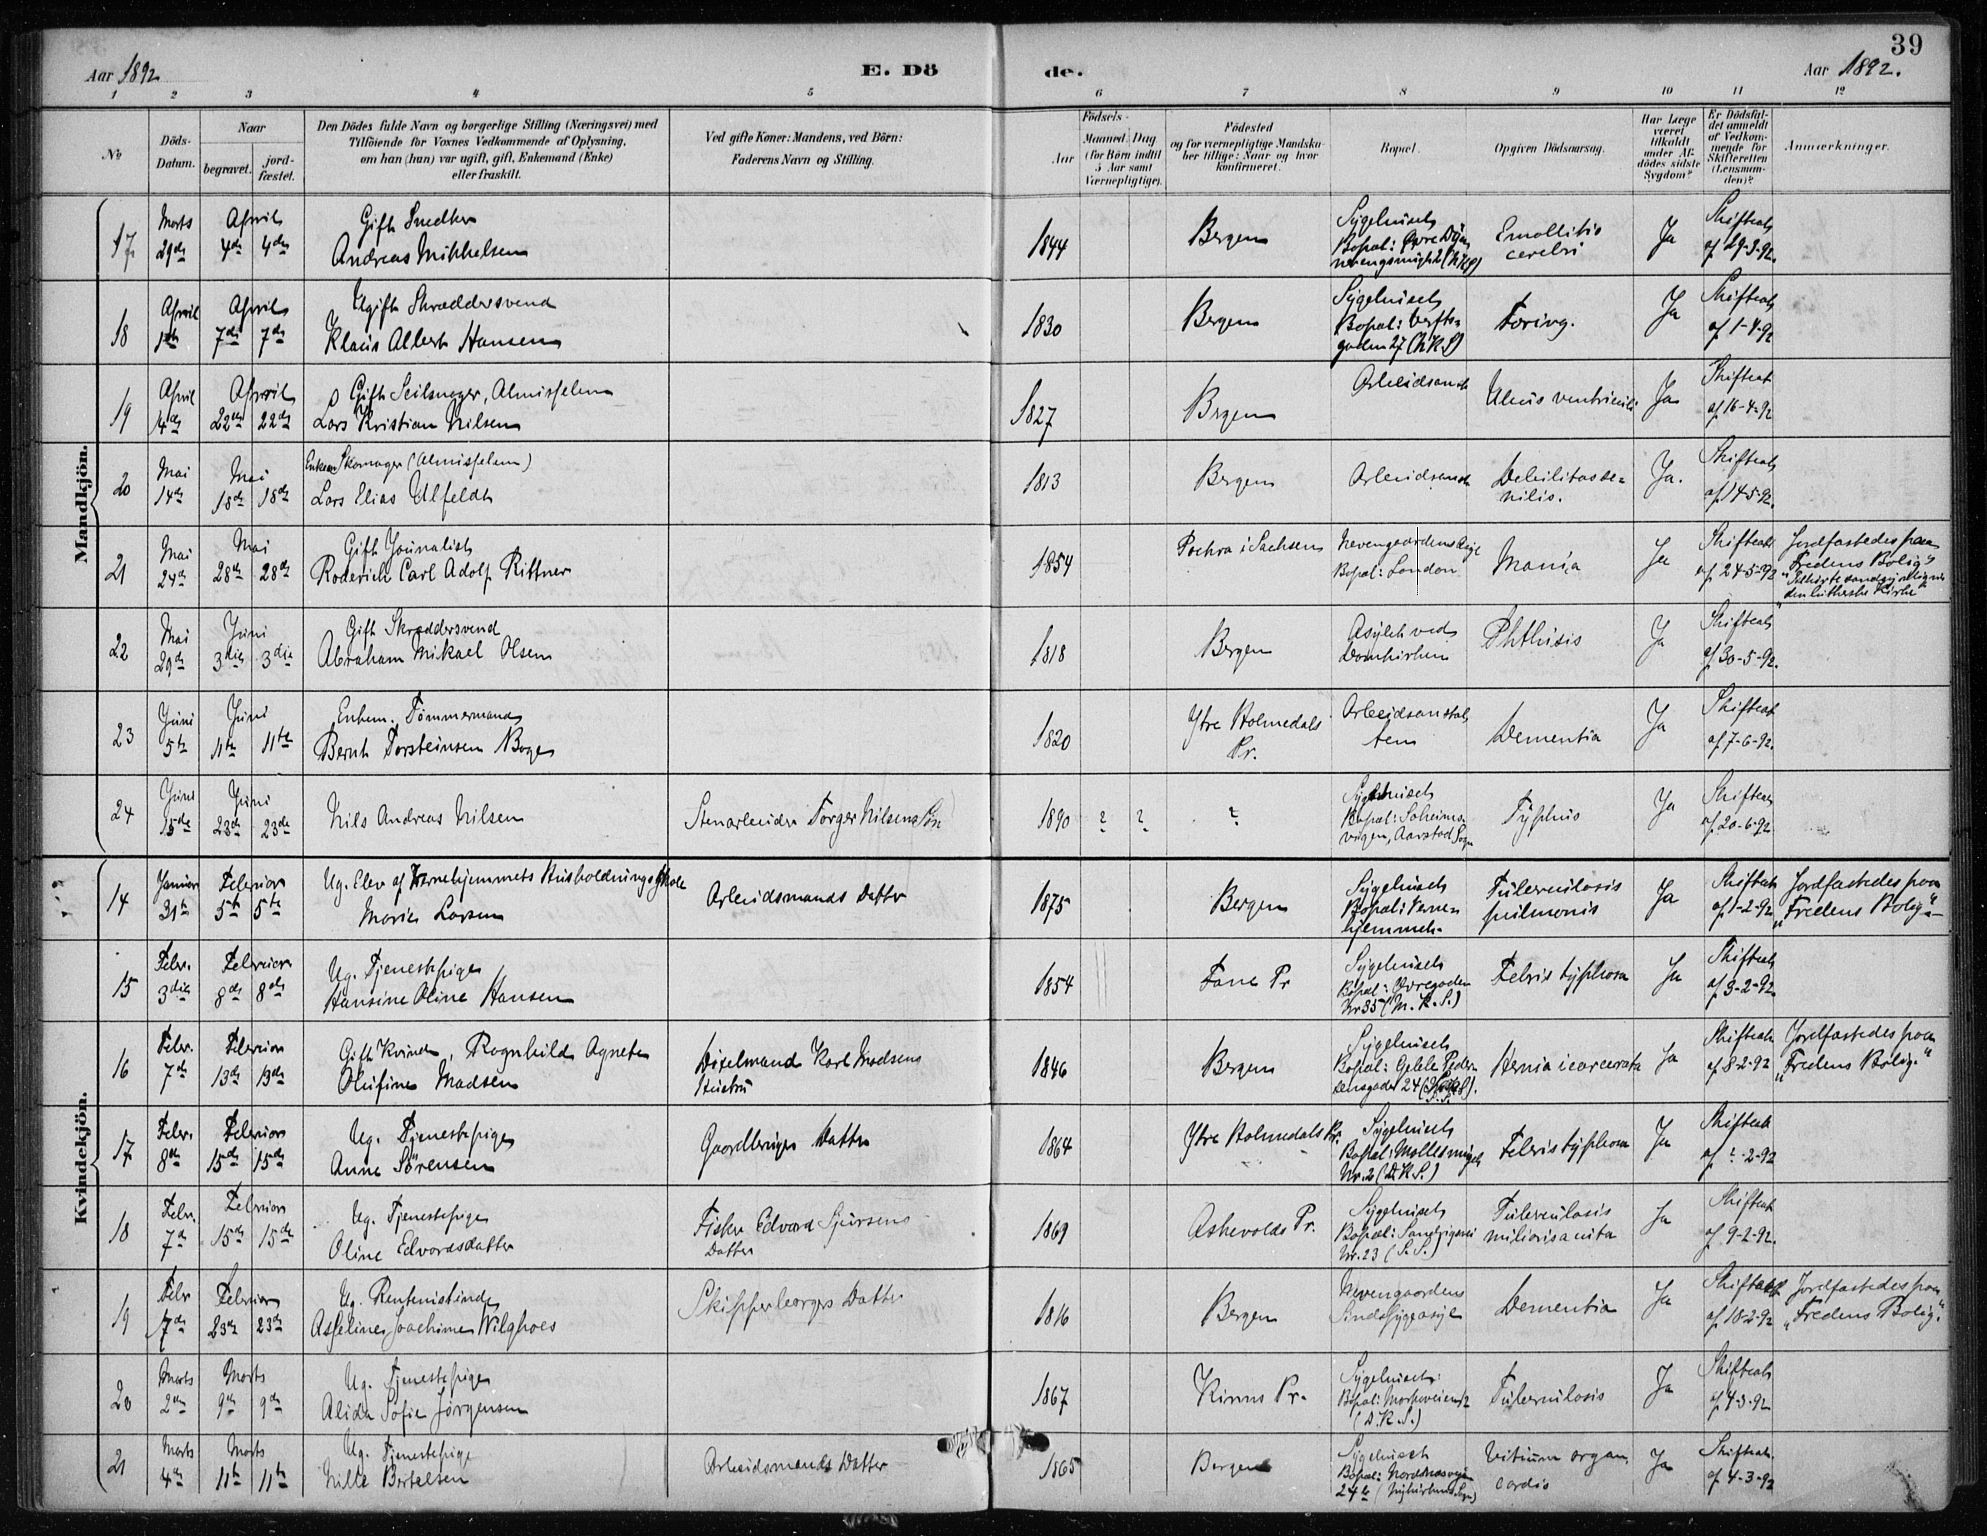 39
Aar 1892
E. Dö
de.
Aar 1892.
1 2 3 4 5 6 7 8 9 10 11 12
No
Döds-Datum.
Naar
begravet.
jordfæstet.
Den Dödes fulde Navn og borgerlige Stilling (Næringsvei) med
Tilföiende for Voxnes Vedkommende af Oplysning,
om han (hun) var ugift, gift, Enkemand (Enke)
eller fraskilt.
Ved gifte Koner: Mandens, ved Börn:
Faderens Navn og Stilling.
Födsels-
Aar
Maaned
Dag
(for Börn indtil
5 Aar samt
Værnepligtige).
Födested
og for værnepligtige Mandska-
ber tillige: Naar og hvor
konfirmeret.
Bopæl.
Opgiven Dödsaarsag.
Har Læge
været
tilkaldt
under Af-
dödes sidste
Sygdom?
Er Dödsfal-
det anmeldt
af Vedkom-
mende for
Skifteretten
(Lensman-
den)?
Anmærkninger.
Mandkjön.
17 Marts 29de April 4de 4de
Gift Snedker
Andreas Mikkelsen
1844 Bergen
Sygehuset
Bopæl: Øvre
Emollitio
cerebri
Ja
Skifteatt
af 29-3-92.
18 April 1ste April 7de 7de
Ugift Skræddersvend
Klaus Albert Hansen
1830 Bergen
Sygehuset
Bopæl: Verfts-
gaden 27 (N.K.S)
Ja
Skifteatt
af 1-4-92
19 April 14de April 22de 22de
Gift Seilmager, Almisselem
Lars Kristian Nilsen
1827 Bergen
Arbeidsanst
Ulcus ventriculi
Ja
Skifteatt
af 16-4-92
20 Mai 14de Mai 18de 18de
Enkem Skomager (Almisselem)
Lars Elias Ulfeldt
1813 Bergen
Arbeidsanst
Debilitas se-
nilis.
Ja.
Skifteatt
af 14-5-92.
21 Mai 24de Mai 28de 28de
Gift Journalist
Roderich Carl Adolf Rittner
1854 Pochra i Sachsen
Nevengaardens Asyl
Bopæl: London
Mania
Ja
Skifteatt
af 24-5-92
Jordfæstedes paa
"Fredens Bolig"
den lutherske Kirke"
22 Mai 29de Juni 3die 3die
Gift Skræddersvend
Abraham Mikael Olsen
1818 Bergen
Asylet ved
Domkirken
Phthisis
Ja
Skifteatt
af 30-5-92.
23 Juni 5te Juni 11te 11te
Enkem. Tømmermand
Bernt Torsteinsen Boge
1820 Ytre Holmedals
Pr.
Arbeidsanstal
ten
Dementia
Ja
Skifteatt
af 7-6-92.
24 Juni 15de Juni 23de 23de
Nils Andreas Nilsen
Stenarbeider Torger Nilsens Søn
1890 ? ? ?
Sygehuset
Bopæl: Solheims-
vigen, Aarstad Sogn
Typhus
Ja
Skifteatt
af 20-6-92.
Kvindekjön.
14 Januar 31te Februar 5te 5te
Ug. Elev af Værnehjemmets Husholdningsskole
Marie Larsen
Arbeidsmands Datter
1875 Bergen
Sygehuset
Bopæl: Værne-
hjemmet
Tuberculosis
pulmonis
Ja
Skifteatt
af 1-2-92
Jordfæstedes paa
"Fredens Bolig"
15 Febr. 3die Februar 8de 8de
Ug. Tjenestepige
Hansine Oline Hansen
1854 Fane Pr
Sygehuset
Bopæl: Øvregaden
Nr 35 (M.K.S.)
Febris typhosa
Ja
Skifteatt
af 3-2-92.
16 Febr. 7de Februar 13de 13de
Gift Kvinde, Ragnhild Agnete
Olufine Madsen
Dixelmand Karl Madsens
Hustru
1846 Bergen
Sygehuset
Bopæl: Geble Peder-
sensgaden 24
Hernia icarcerata
Ja
Skifteatt
af 8-2-92
Jordfæstedes paa
"Fredens Bolig."
17 Febr. 8de Februar 15de 15de
Ug. Tjenestepige
Anne Sörensen
Gaardbruger Datter
1864 Ytre Holmedals Pr.
Sygehuset
Nr. 2 (D.K.S.)
Febris typhosa
Ja
Skifteatt
af ?-2-92
18 Febr. 7de Februar 15de 15de
Ug. Tjenestepige
Oline Edvardsdatter
Fisker Edvard Sjursens
Datter
1869 Askevolds Pr.
Sygehuset
Nr. 23 (S.S.)
Tuberculosis
miliaris acuta
Ja
Skifteatt
af 9-2-92.
19 Febr 17de Februar 23de 23de
Ug. Rentenistinde
Asseline Joachime Wilghoes
Skipperborgers Datter
1816 Bergen
Nevengaardens
Sindssygeasyl
Dementia
Ja
Skifteatt
af 18-2-92
Jordfæstedes paa
"Fredens Bolig".
20 Marts 2den Marts 9de 9de
Ug. Tjenestepige
Alida Sofie Jørgensen
1867 Kinns Pr.
Sygehuset
Bopæl: Markeveien 2
(D.K.S.)
Tuberculosis
Ja
Skifteatt
af 4-3-92
21 Marts 4de Marts 11te 11te
Ug. Tjenestepige
Nille Bertelsen
Arbeidsmands Datter
1865 Bergen
Sygehuset
Bopæl: Nordnæsveien
24 (Nykirkens Sogn)
Vitium organ.
cordis
Ja
Skifteatt.
af 4-3-92